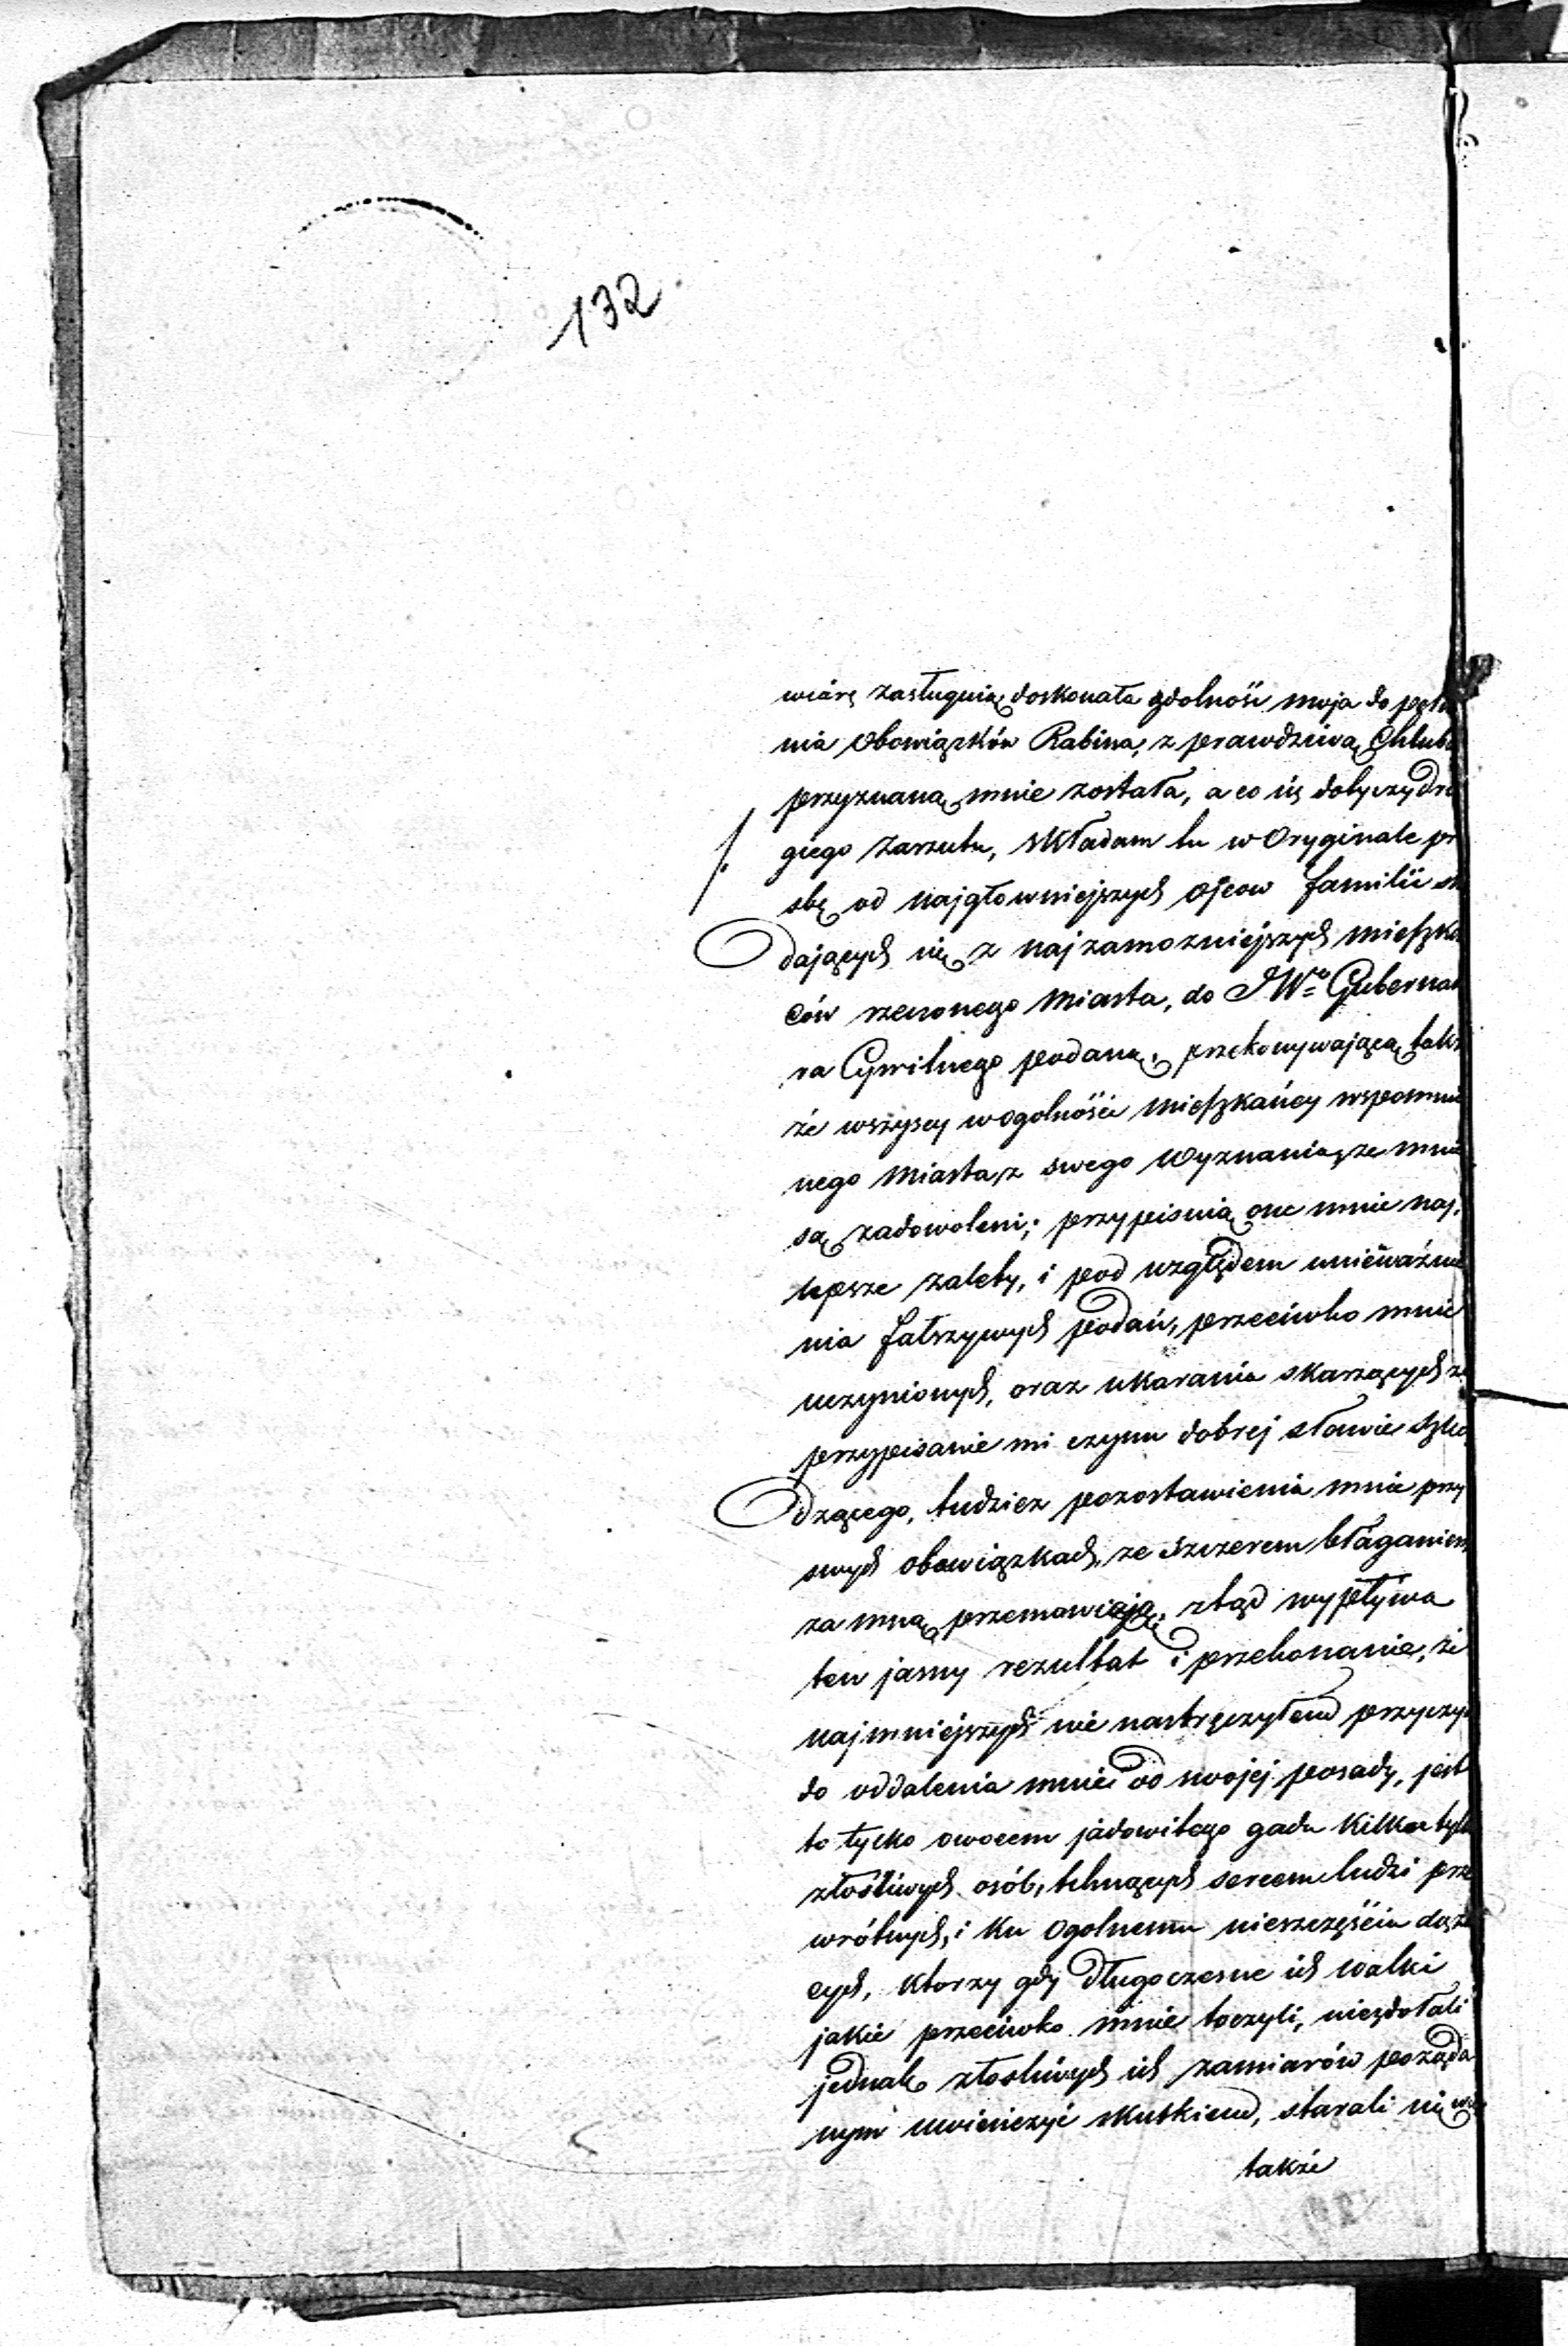 132
wiarę zasługuią, doskonała zdolność moja do pełn
nia Obowiązków Rabina, z prawdziwą Chlub
przyznaną mnie została, a co się dotyczy dru
giego zarzutu, składam tu w Oryginale pr
sbę od najgłowniejszych ojcow familii sk
dających się z najzamozniejszych mieszka
ców rzeczonego miasta, do JWo Gubernat
ra Cywilnego podaną, przekonywającą, takż
że wszyscy wogolności mieszkańcy wspomnio
nego miasta, z swego Wyznania, ze mnie
są zadowoleni; przypisuią one mnie naj,
lepsze zalety, i pod względem unieważnie
nia fałszywych podań, przeciwko mnie
uczynionych, oraz ukarania skarzących za
przypisanie mi czynu dobrej sławie szko
dzącego, tudziez pozostawienia mnie przy
swych obowiązkach, ze szczerem błaganiem
za mną przemawiają, ztąd wypływa
ten jasny rezultat i przekonanie, że
najmniejszych nie nastręczyłem przyczyn
do oddalenia mnie od swojej posady, jest
to tylko owocem jadowitego gadu kilku tylk
złośliwych osób, tchnących sercem ludzi prze
wrótnych, i ku ogolnemu nieszczęściu dąże
cych, ktorzy gdy długoczesne ich walki
jakie przeciwko mnie toczyli, niezdołali
jednak złosliwych ich zamiarów pożąda
nym uwieńczyć skutkiem, starali się
także